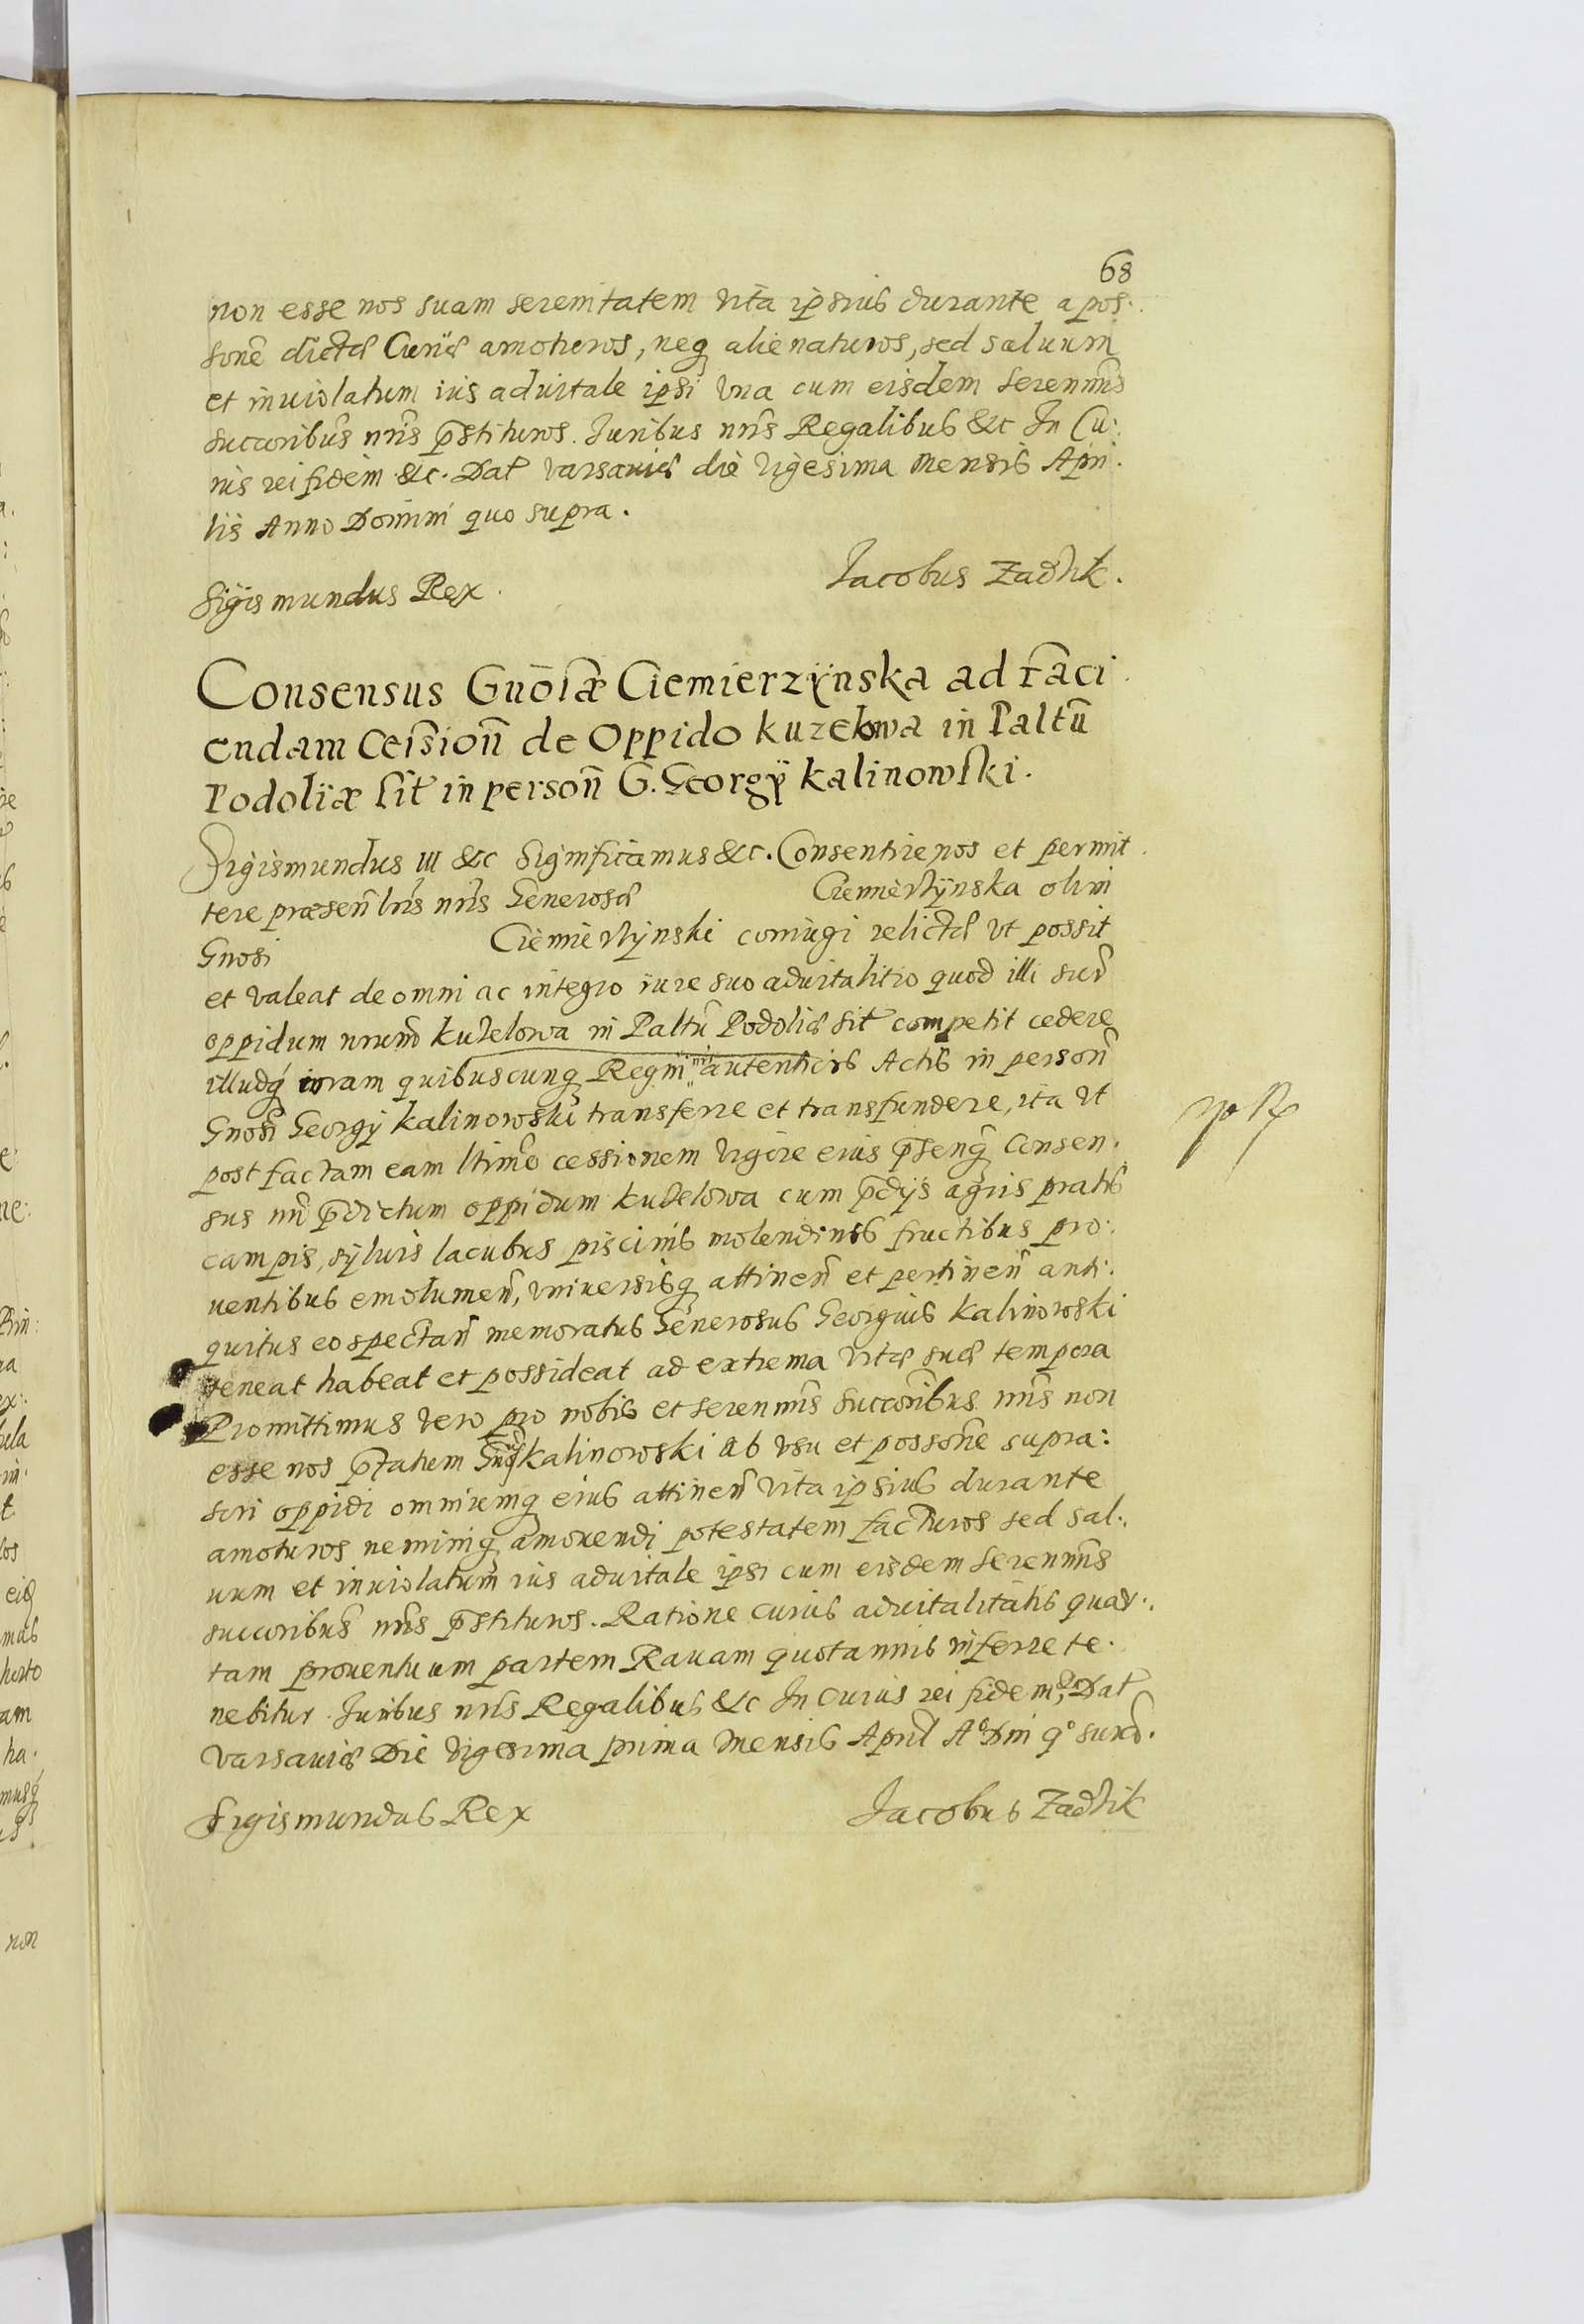 68
non esse nos suam serenitatem vita ipsius durante a pos:
sone dictæ Curiæ amoturos, neq alienaturos, sed saluum
et inuiolatum ius aduitale ipsi vna cum eisdem Serenmis
succoribus nris pstituros. Iuribus nris Regalibus &c In Cu:
ius rei fidem &c. Dat Varsauiæ die vigesima Mensis Apri:
lis Anno Domini quo supra.
Sigismundus Rex. Iacobus Zadzik.
Consensus Gnosæ Ciemierzÿnska ad faci
endam Cessionn de Oppido Kuzelowa in Paltu
Podoliæ sit in personn G. Georgÿ Kalinowski.
Sigismundus III &c Significamus &c. Consentire nos et permit
tere præsen lris nris Generosæ Ciemierzÿnska olim
Gnosi Ciemierzÿnski coniugi relictæ vt possit
et valeat de omni ac integro iure suo aduitalitio quod illi sup
oppidum nrum Kuzelowa in Paltu Podoliæ sit competit cedere
illudq coram quibuscunq Regni nri autenticis Actis in person
Gnosi Georgÿ Kalinowski transferre et transfundere, ita vt
post factam eam ltime cessionem vigore eius psenq Consen:
sus nri pdictum oppidum Kuzelowa cum pdijs agris pratis
campis, sÿluis lacubus piscinis molendinis fructibus pro:
uentibus emolumen, vniuersisq attinen et pertinen anti:
quitus eo spectan memoratus Generosus Georgius Kalinowski
teneat habeat et possideat ad extrema vitæ suæ tempora
Promittimus vero pro nobis et Serenmis succoribus nris non
esse nos pfatum Gnos Kalinowski ab vsu et possone supra:
scri oppidi omniumq eius attinen vita ipsius durante
amoturos neminiq amouendi potestatem facturos sed sal:
uum et inuiolatum ius aduitale ipsi cum eisdem Serenmis
succoribus nris pstituros. Ratione cuius aduitalitatis quar:
tam prouentuum partem Rauam quotannis inferre te:
nebitur. Iuribus nris Regalibus &c In cuius rei fidem &c Dat
Varsauiæ Die vigesima prima Mensis April Aº Dni qº supra.
Sigismundus Rex Iacobus Zadzik